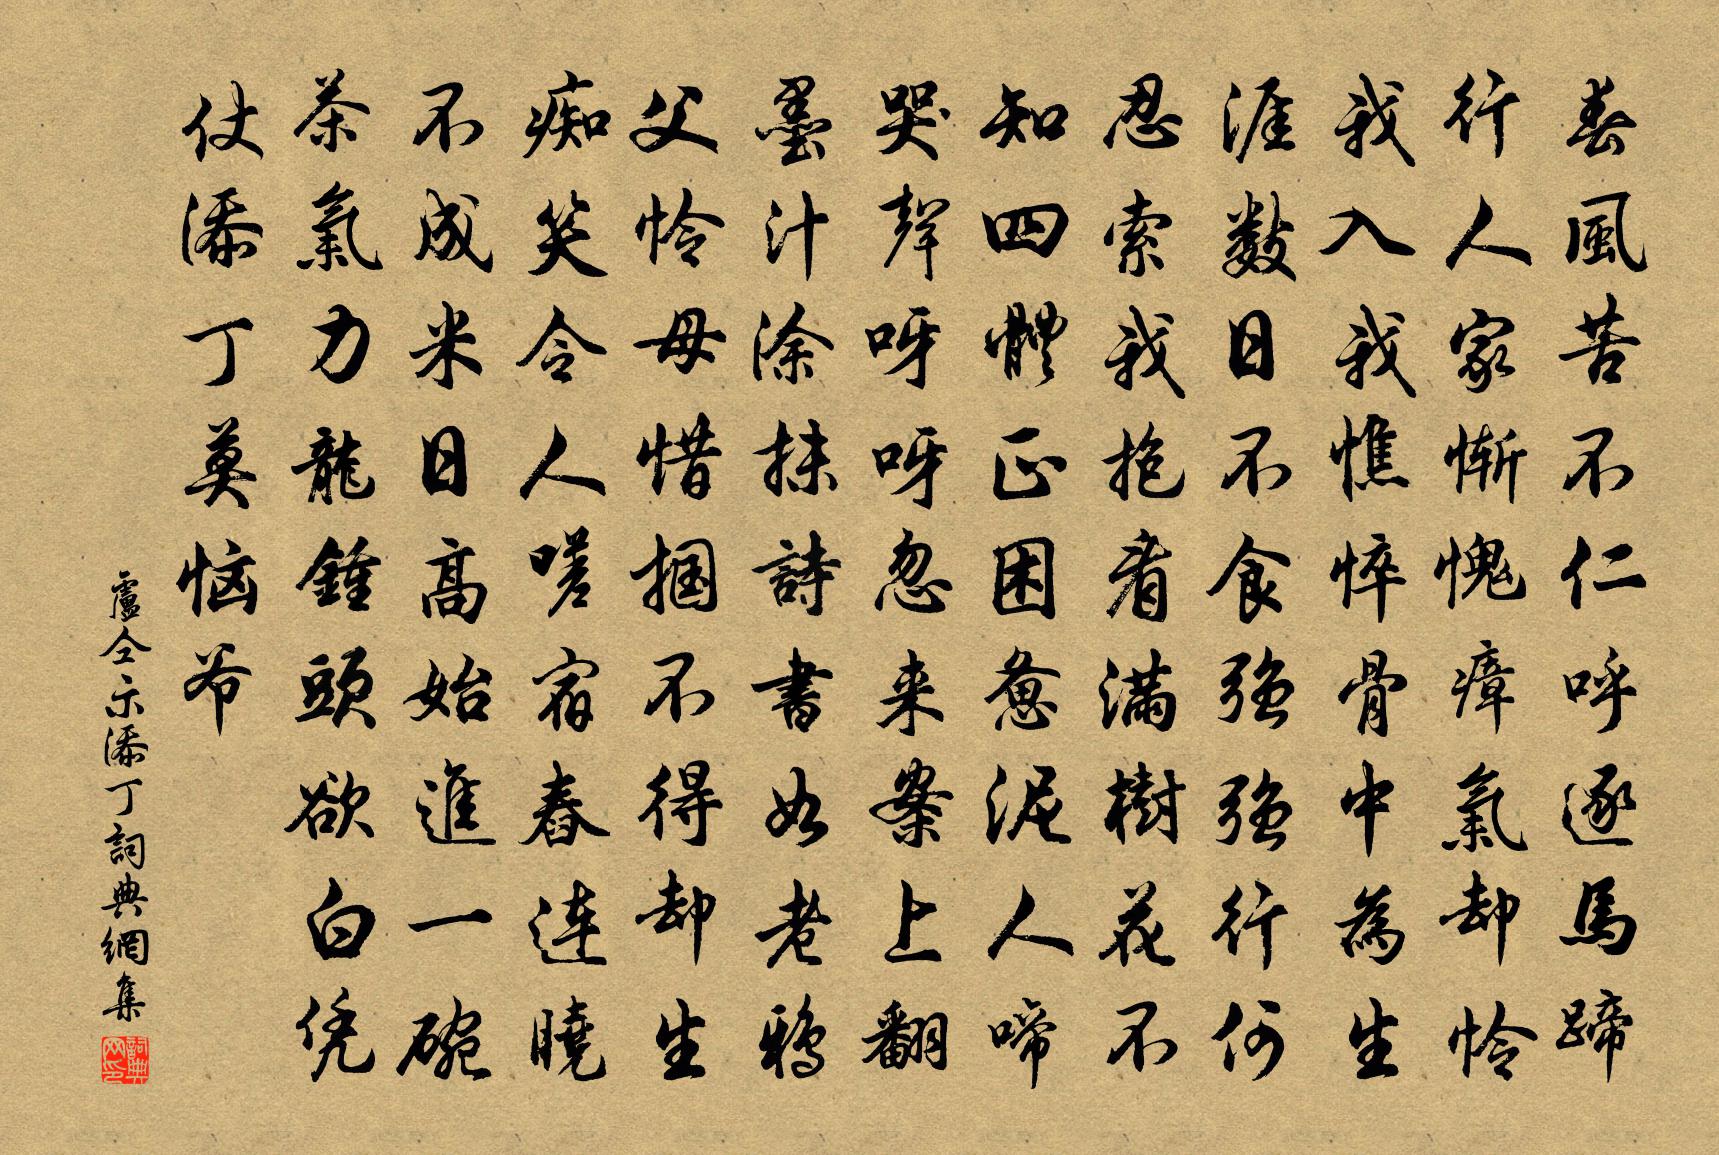 春風苦不仁呼逐馬蹄
行人家慚愧瘴氣却怜
我入我憔悴骨中為生
涯數日不食強強行何
忍索我抱看滿樹花不
知四體正困惫泥人啼
哭聲呀呀忽来案上翻
墨汁涂抹詩書如老鴉
父怜母惜掴不得却生
痴笑令人嗟宿舂連曉
不成米日高始進一碗
茶氣力龍鍾頭欲白凭
仗添丁莫恼爷
盧仝示添丁詞典網集
詞典网印